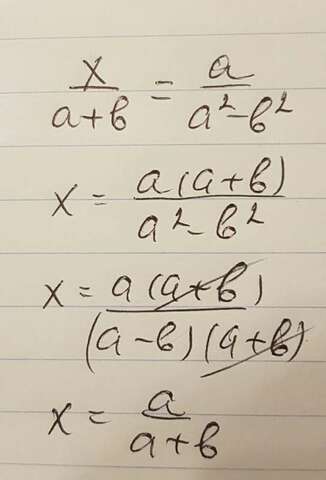 x/(a+b) = a/(a²-b²)
x = a(a+b)/(a²-b²)
x = a(a+b)/((a-b)(a+b))
x = a/(a+b)